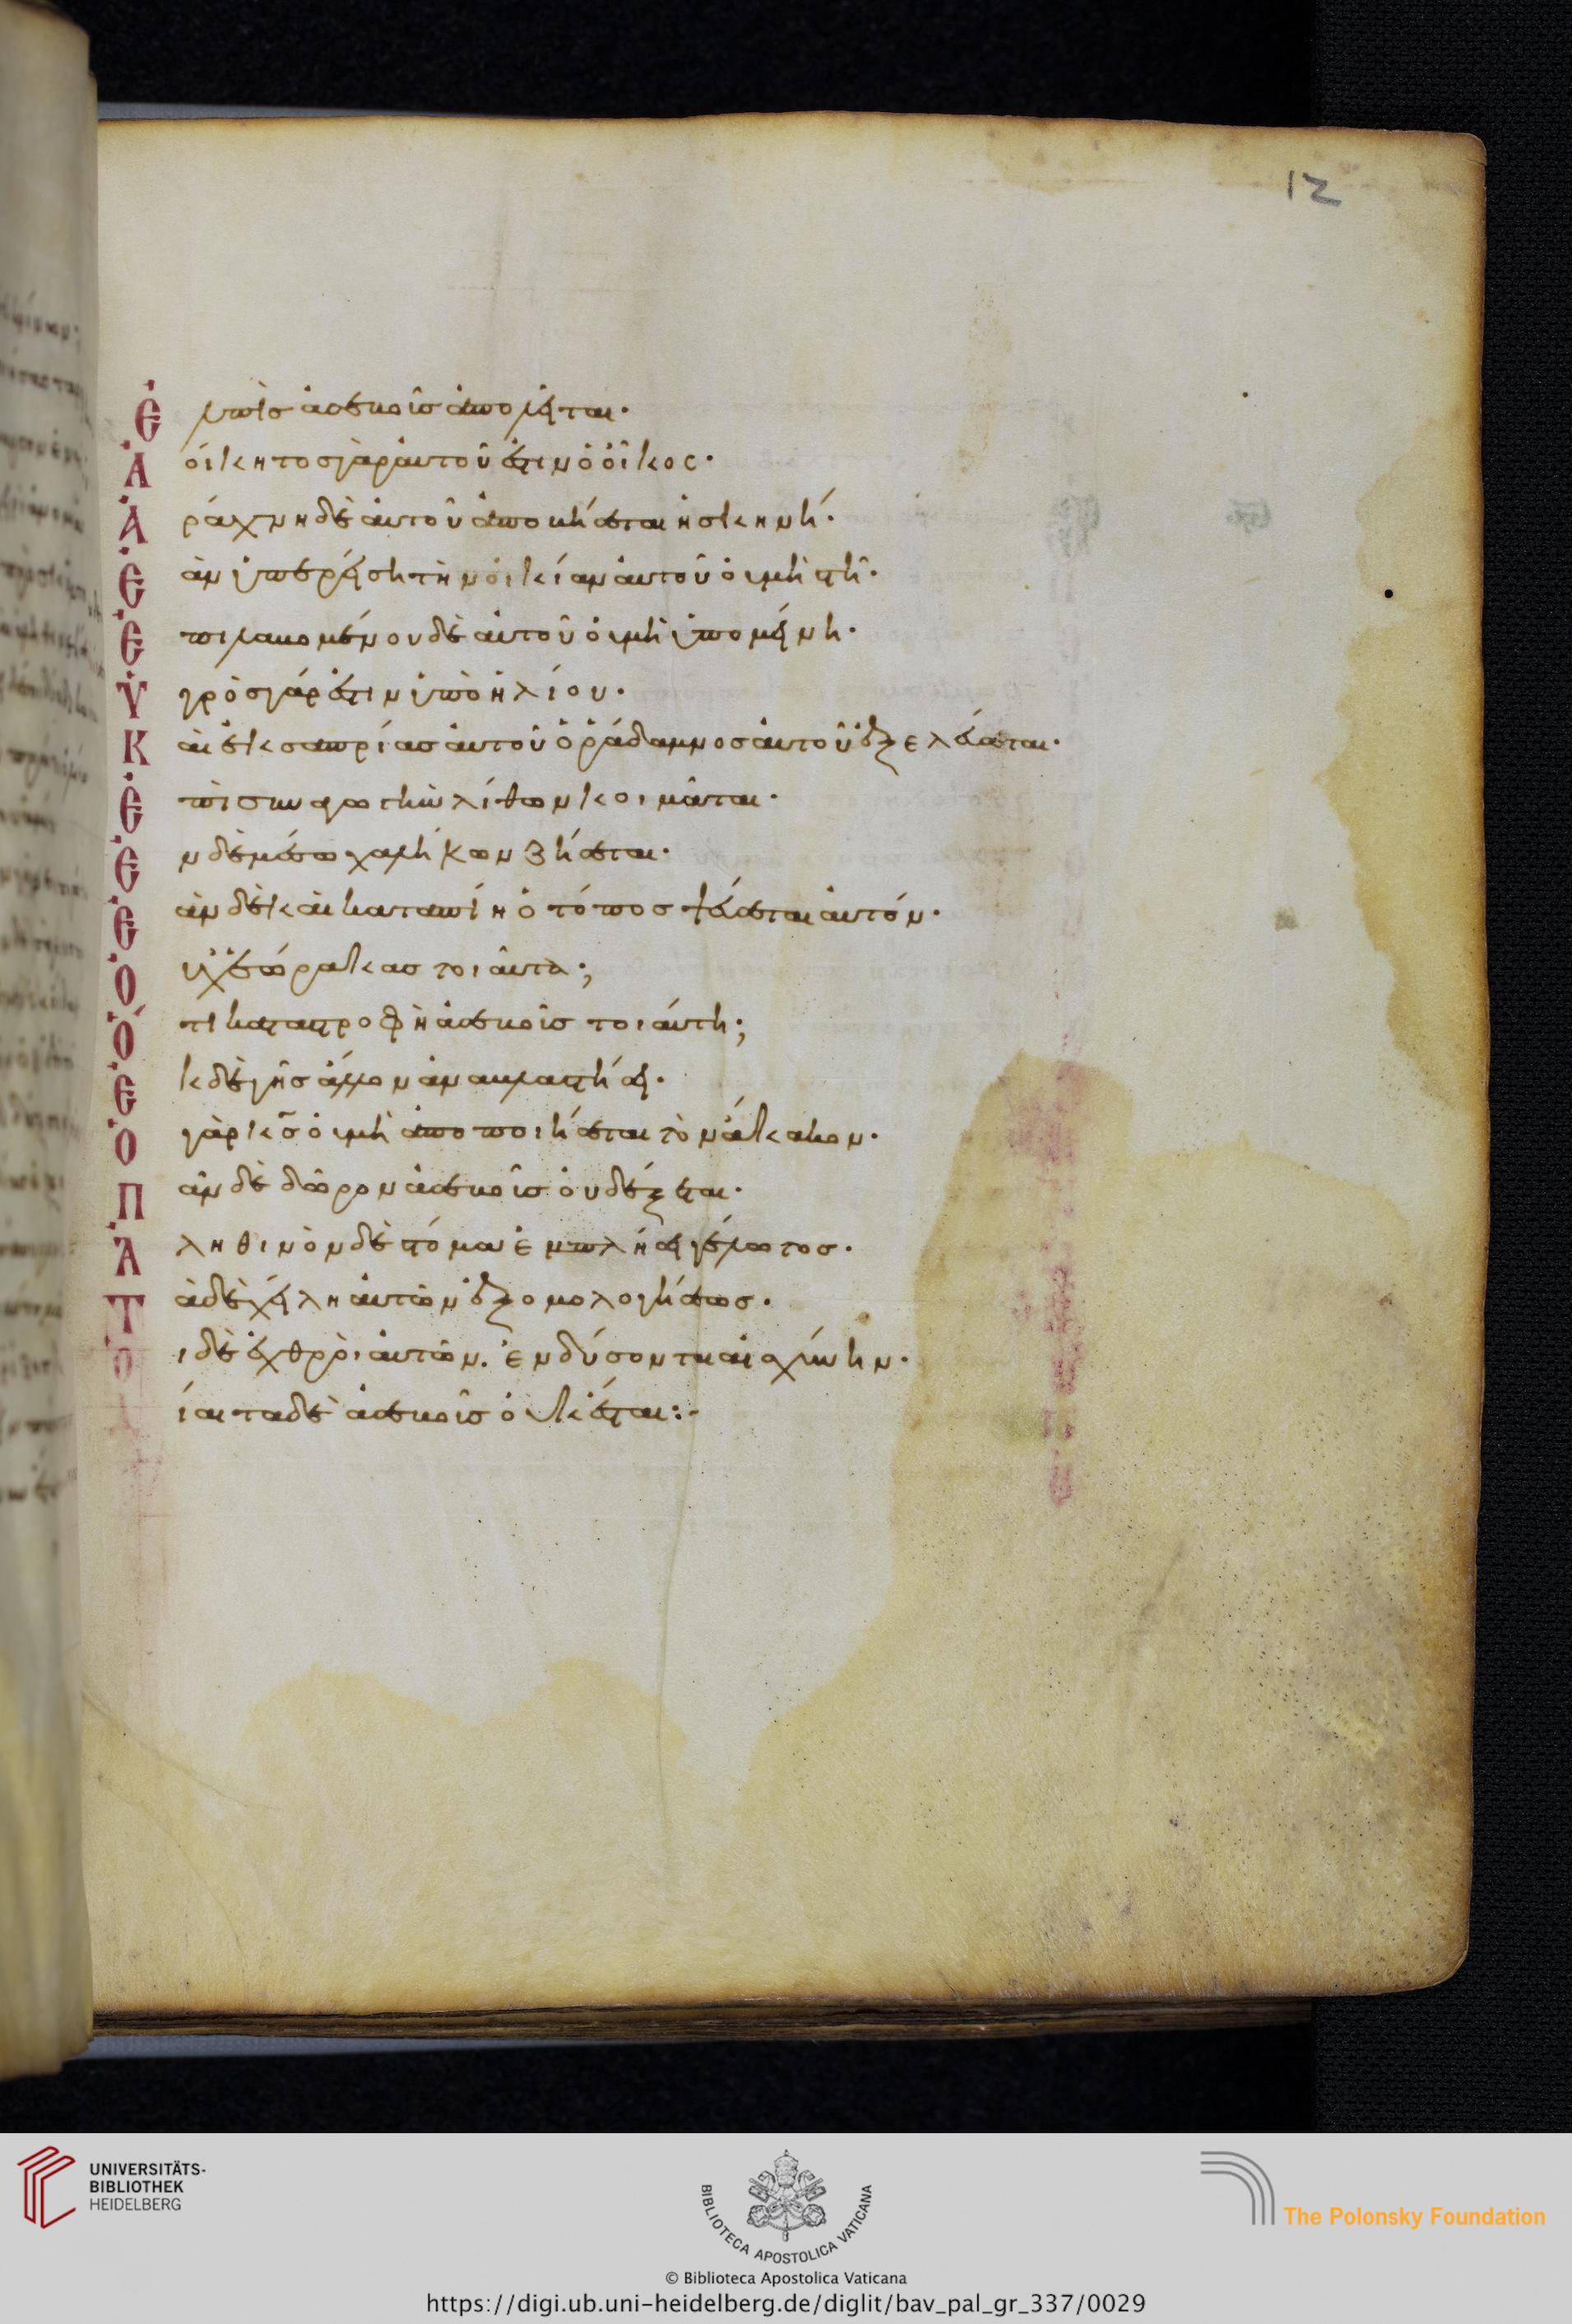 Ἐλπὶσ ἀσεβοῦσ ἀπολεῖται·
Ἀοίκητοσ γὰρ αὐτοῦ ἐστιν ὁ οἶκος·
Ἀράχνη δὲ αὐτοῦ ἀποβήσεται ἡ σκηνή·
Ἐὰν ὑπερείση τὴν οἰκίαν αὐτοῦ οὐ μὴ στῆ·
Ἐπιλαβομένου δὲ αὐτοῦ οὐ μὴ ὑπομείνη·
Ὑγρὸσ γάρ ἐστιν ὑπὸ ἡλίου·
Καὶ ἐκ σαπρίασ αὐτοῦ ὁ ῥάδαμνοσ αὐτοῦ ἐξελεύσεται·
Ἐπὶ συναγωγὴν λίθων κοιμᾶται·
Ἐν δὲ μέσω χαλήκων ζήσεται·
Ἐὰν δὲ καὶ καταπίη ὁ τόποσ ψεύσεται αὐτόν·
Οὐχ ἑώρακασ τοιαῦτα;
Ὅτι καταστροφὴ ἀσεβοῦσ τοιαύτη;
Ἐκ δὲ γῆσ ἄλλον ἀναβλαστήσει·
Ὁ γὰρ κσ οὐ μὴ ἀποποιήσεται τὸν ἄκακον·
Πᾶν δὲ δῶρον ἀσεβοῦσ οὐ δέξεται·
Ἀληθινὸν δὲ στόμα ἐμπλήσει γέλωτοσ·
Τὰ δὲ χείλη αὐτῶν ἐξομολογήσεωσ·
Οἱ δὲ ἐχθροὶ αὐτῶν. ἐνδύσονται αἰσχύνην·
ίαιτα δὲ ἀσεβοῦσ οὐκ ἔσται:-
12
UNIVERSITÄTS-
BIBLIOTHEK
HEIDELBERG
BIBLIOTECA APOSTOLICA VATICANA
The Polonsky Foundation
© Biblioteca Apostolica Vaticana
https://digi.ub.uni-heidelberg.de/diglit/bav_pal_gr_337/0029